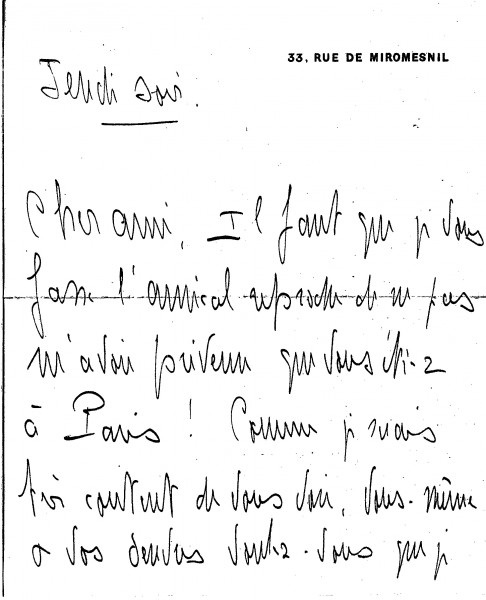 33, RUE DE MIROMESNIL
Jeudi soir.
Cher ami, Il faut que je vous
fasse l'amical reproche de ne pas
m'avoir prévenu que vous étiez
à Paris ! Comme je serais
très content de vous voir, vous-même
et vos voulez-vous que je